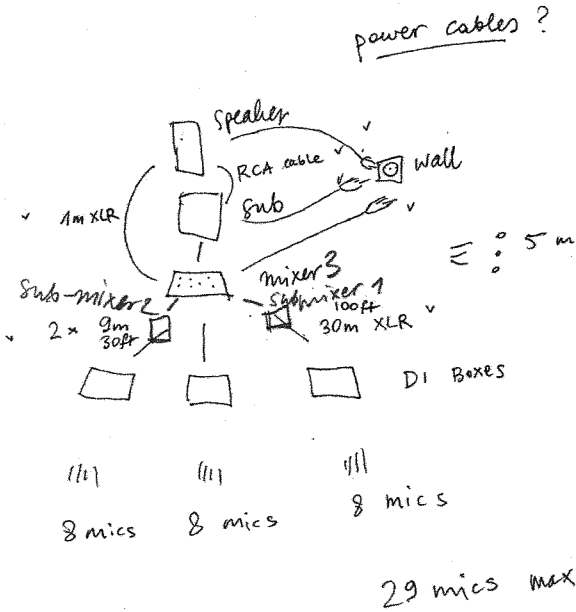 power cables ?
Speaker
RCA cable
Wall
1m XLR
Sub
5 m
mixer 3
Sub-mixer 2
submixer 1
100ft
2 x 9m
30ft
30m XLR
DI Boxes
8 mics
8 mics
8 mics
29 mics max